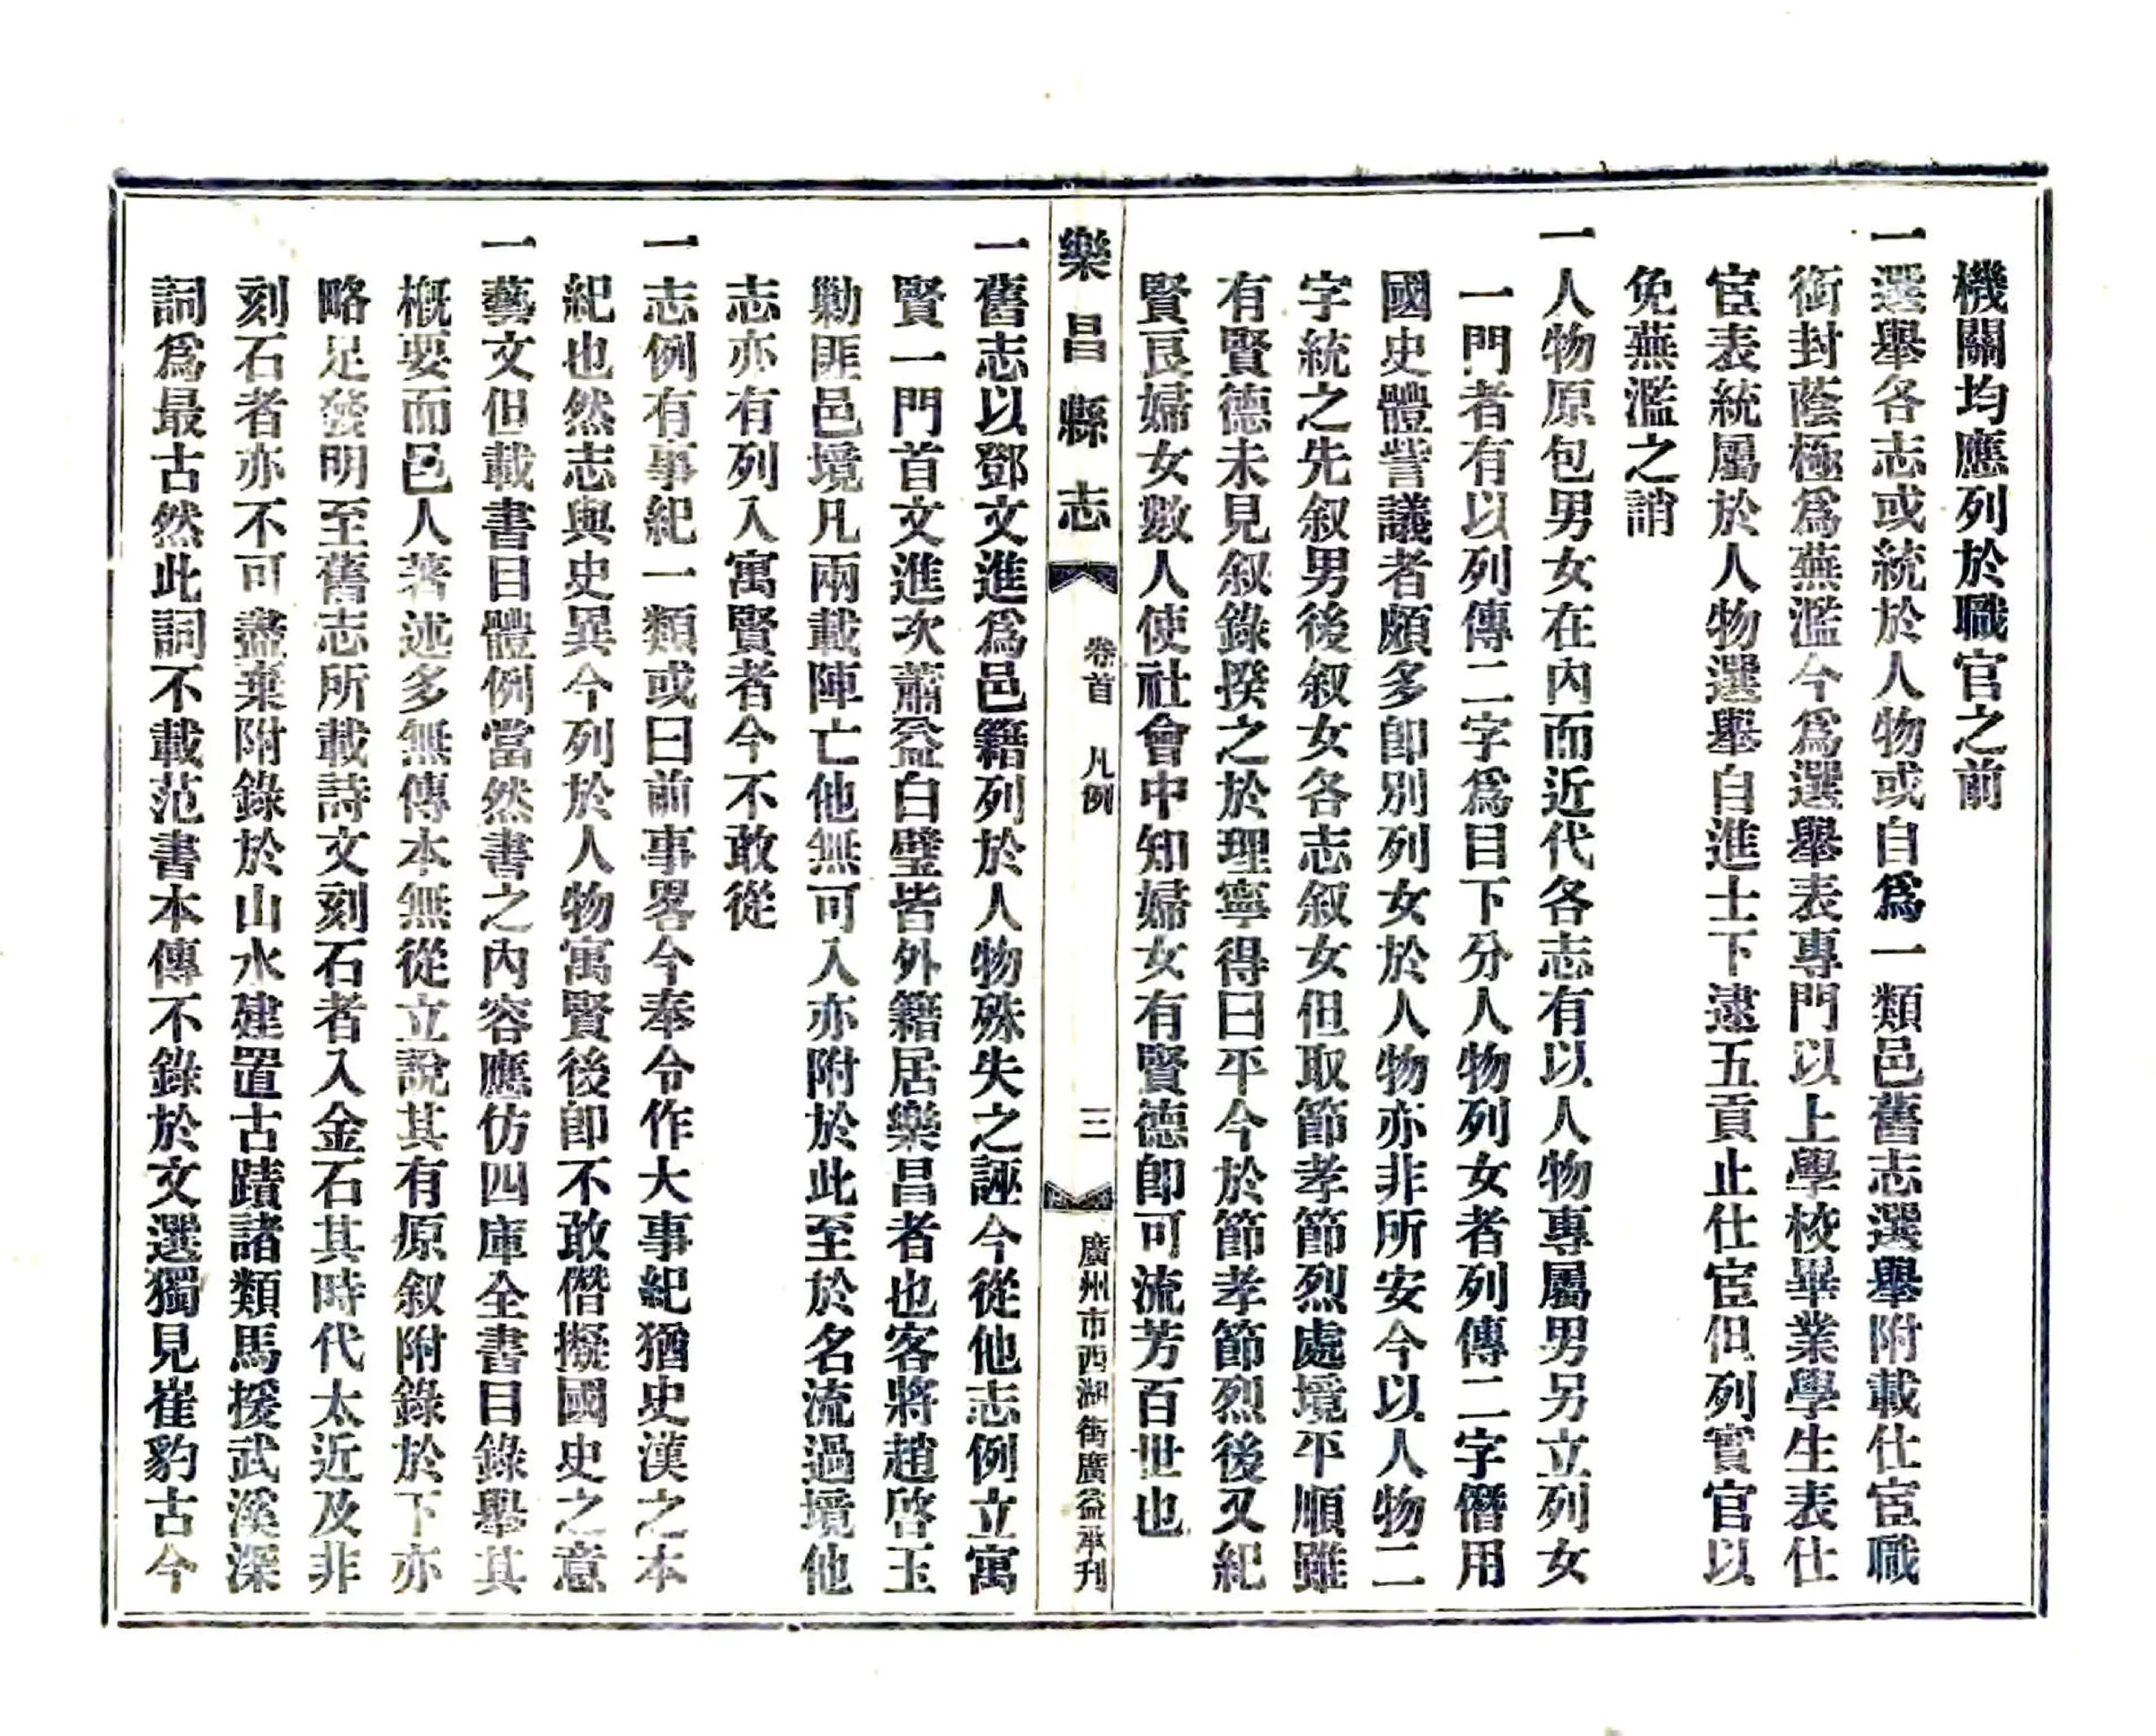 機關均應列於職官之前
一選舉各志或統於人物或自爲一類邑舊志選舉附載仕宦職
銜封蔭極爲蕪濫今爲選舉表專門以上學校畢業學生表仕
宦表統屬於人物選舉自進士下逮五貢止仕宦但列實官以
免蕪濫之誚
一人物原包男女在內而近代各志有以人物專屬男另立列女
一門者有以列傳二字爲目下分人物列女者列傳二字僭用
國史體訾議者頗多卽別列女於人物亦非所安今以人物二
字統之先叙男後叙女各志叙女但取節孝節烈處境平順雖
有賢德未見叙錄揆之於理寧得曰平今於節孝節烈後又紀
賢良婦女數人使社會中知婦女有賢德卽可流芳百世也
樂昌縣志
卷首 凡例
三
廣州市西湖街廣益承刋
一舊志以鄧文進爲邑籍列於人物殊失之誣今從他志例立寓
賢一門首文進次蕭益白璧皆外籍居樂昌者也客將趙啓玉
勦匪邑境凡兩載陣亡他無可入亦附於此至於名流過境他
志亦有列入寓賢者今不敢從
一志例有事紀一類或曰前事畧今奉令作大事紀猶史漢之本
紀也然志與史異今列於人物寓賢後卽不敢僭擬國史之意
一藝文但載書目體例當然書之內容應仿四庫全書目錄舉其
槪要而邑人著述多無傳本無從立說其有原叙附錄於下亦
略足發明至舊志所載詩文刻石者入金石其時代太近及非
刻石者亦不可盡棄附錄於山水建置古蹟諸類馬援武溪深
詞爲最古然此詞不載范書本傳不錄於文選獨見崔豹古今